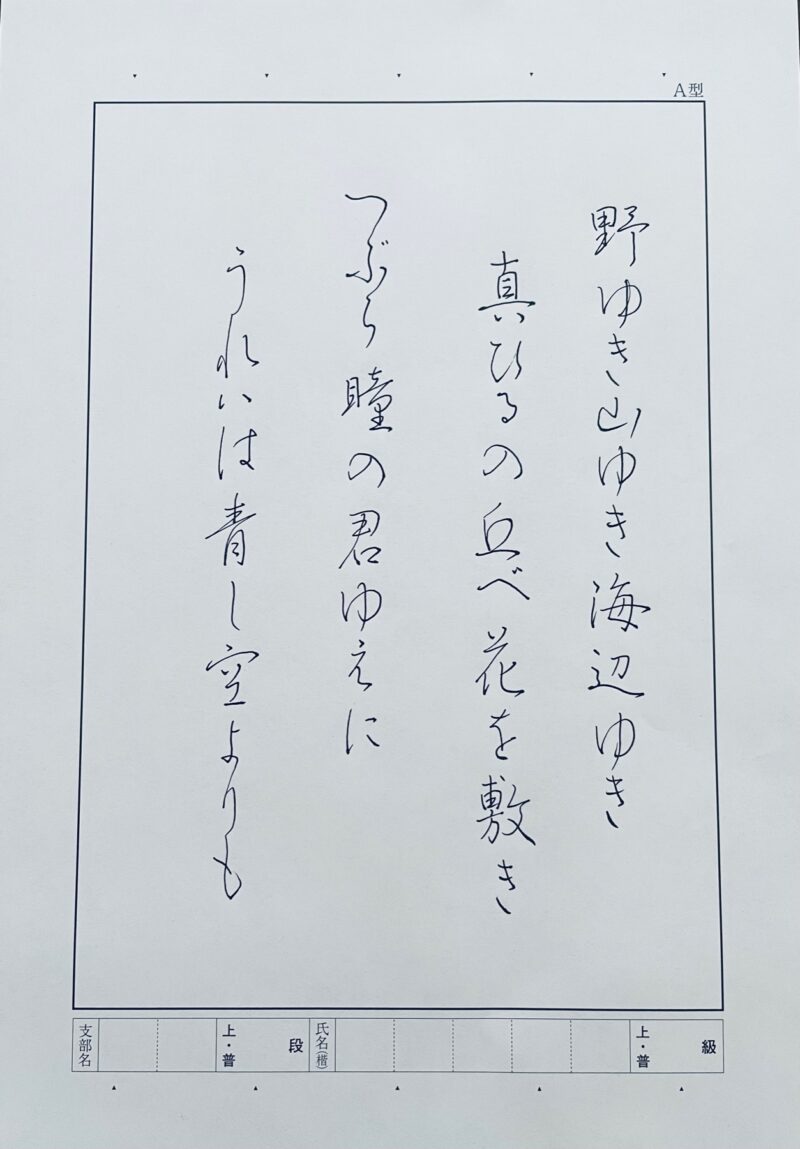 A型
野ゆき山ゆき海辺ゆき
真ひるの丘べ花を敷き
つぶら瞳の君ゆえに
うれいは青し空よりも
級
上・普
氏名(楷)
段
上・普
支部名